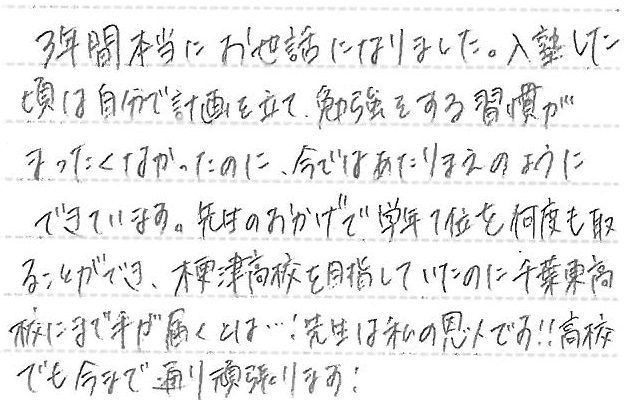 3年間本当にお世話になりました。入塾した
頃は自分で計画を立て、勉強をする習慣が
まったくなかったのに、今ではあたりまえのように
できています。先生のおかげで学年1位を何度も取
ることができ、木更津高校を目指していたのに千葉東高
校にまで手が届くとは…!先生は私の恩人です!!高校
でも今まで通り頑張ります!